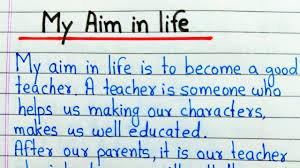 My Aim in life
My aim in life is to become a good
teacher. A teacher is someone who
helps us making our characters,
makes us well educated.
After our parents, it is our teacher